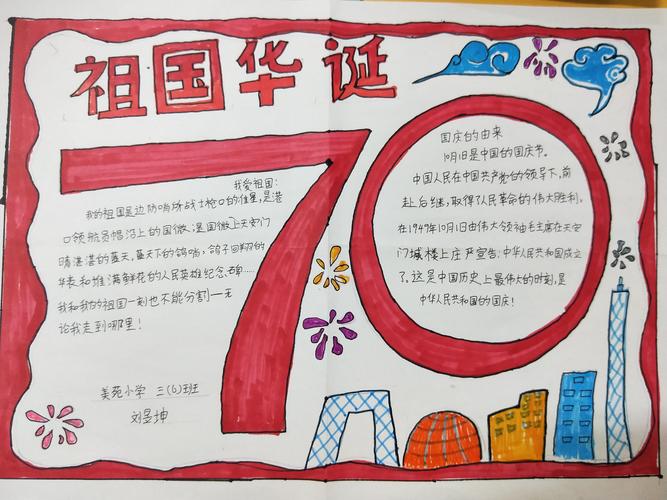 祖国华诞
70
我爱祖国:
我的祖国是边防哨所战士枪口的准星,是港
口领航员帽沿上的国徽,是国徽上天安门
晴湛湛的蓝天,蓝天下的鸽哨,鸽子回翔的
华表和堆满鲜花的人民英雄纪念碑……
我和我的祖国一刻也不能分割—无
论我走到哪里!
美苑小学 三(6)班
刘昱坤
国庆的由来
10月1日是中国的国庆节。
中国人民在中国共产党的领导下,前
赴后继,取得了人民革命的伟大胜利。
在1949年10月1日由伟大领袖毛主席在天安
门城楼上庄严宣告:中华人民共和国成立
了,这是中国历史上最伟大的时刻,是
中华人民共和国的国庆!